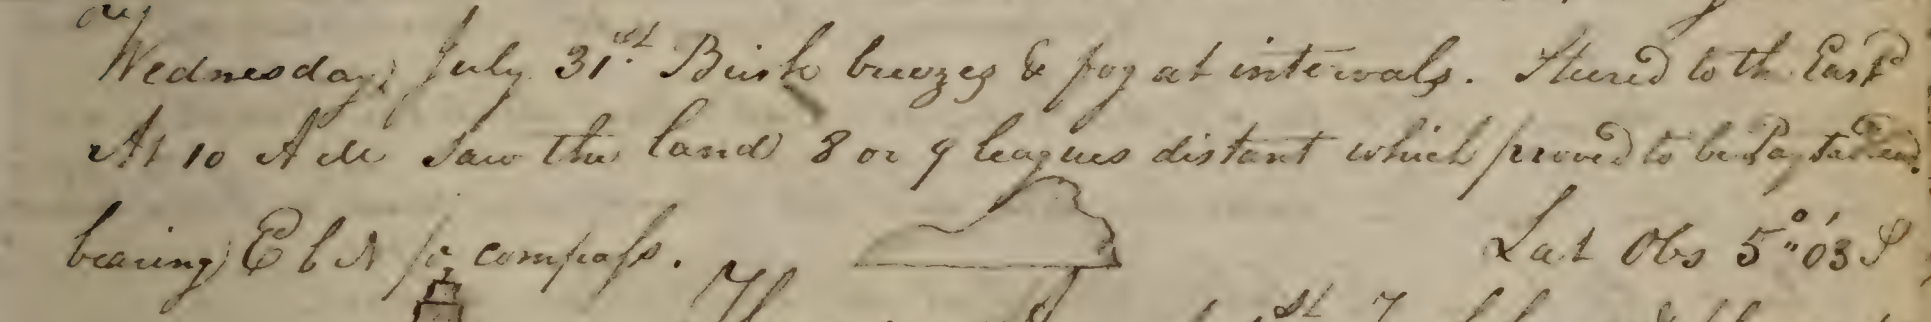 Wednesday July 31.st Brisk breezes & fog at intervals. Steered to th East
At 10 A M Saw the land 8 or 9 leagues distant which proved to be Payta
bearing E b N pr compass.
Lat Obs 5°"03' S